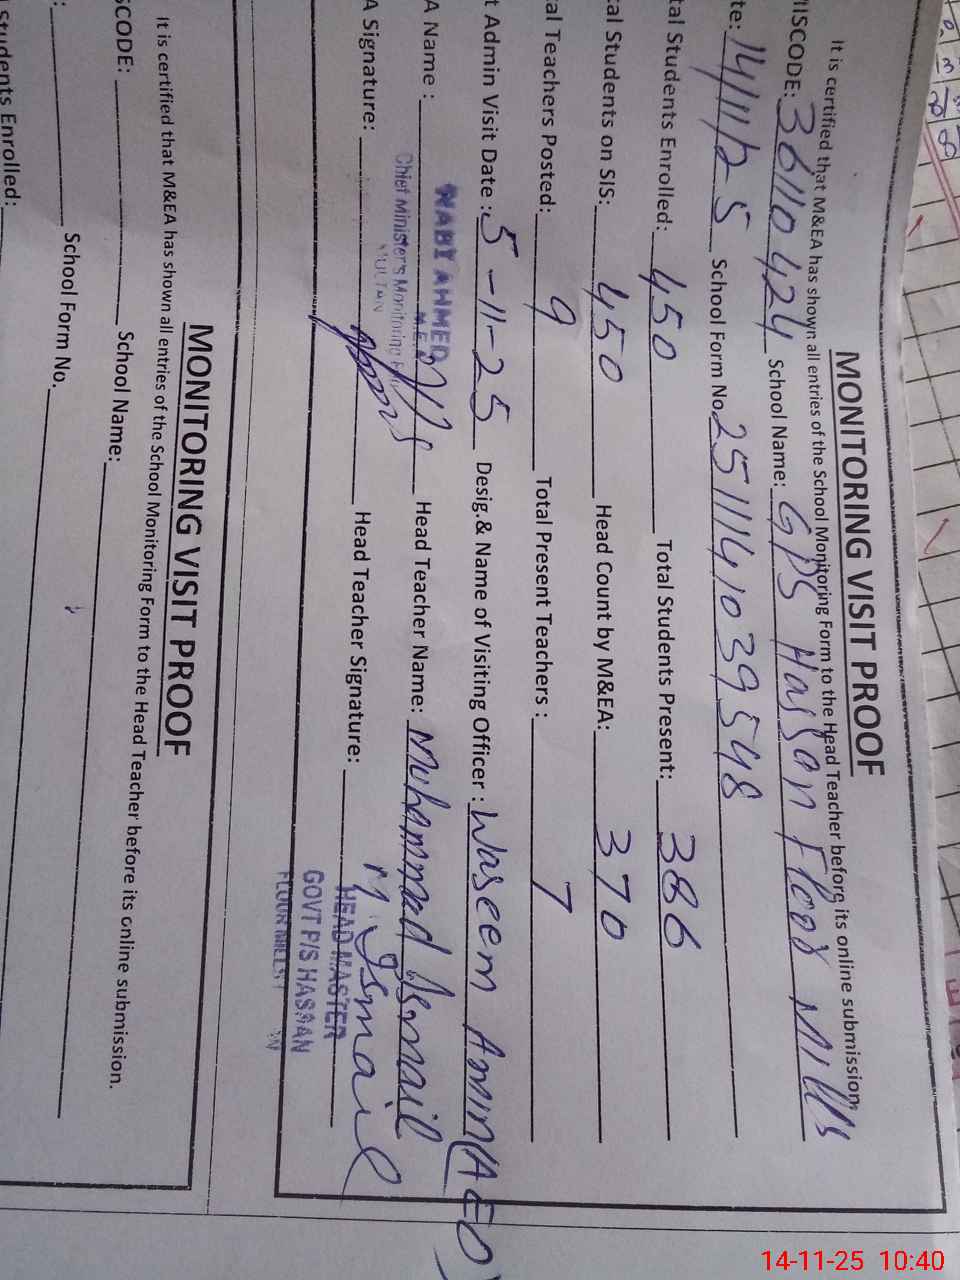 MONITORING VISIT PROOF
It is certified that M&EA has shown all entries of the School Monitoring Form to the Head Teacher before its online submission.
MISCODE: 36110424 School Name: GPS Hassan Floor Mills
te: 14/11/25 School Form No. 2511141039548
tal Students Enrolled: 450 Total Students Present: 386
tal Students on SIS: 450 Head Count by M&EA: 370
tal Teachers Posted: 9 Total Present Teachers : 7
t Admin Visit Date : 5-11-25 Desig.& Name of Visiting Officer : Waseem Amin (AEO)
A Name : Head Teacher Name: Muhammad Ismail
NABI AHMED
M.E.A
Chief Minister's Monitoring
MULTAN
A Signature: Head Teacher Signature: M Ismail
HEAD MASTER
GOVT P/S HASSAN
FLOUR MILLS
MONITORING VISIT PROOF
It is certified that M&EA has shown all entries of the School Monitoring Form to the Head Teacher before its online submission.
SCODE: School Name:
: School Form No.
Students Enrolled:
14-11-25 10:40